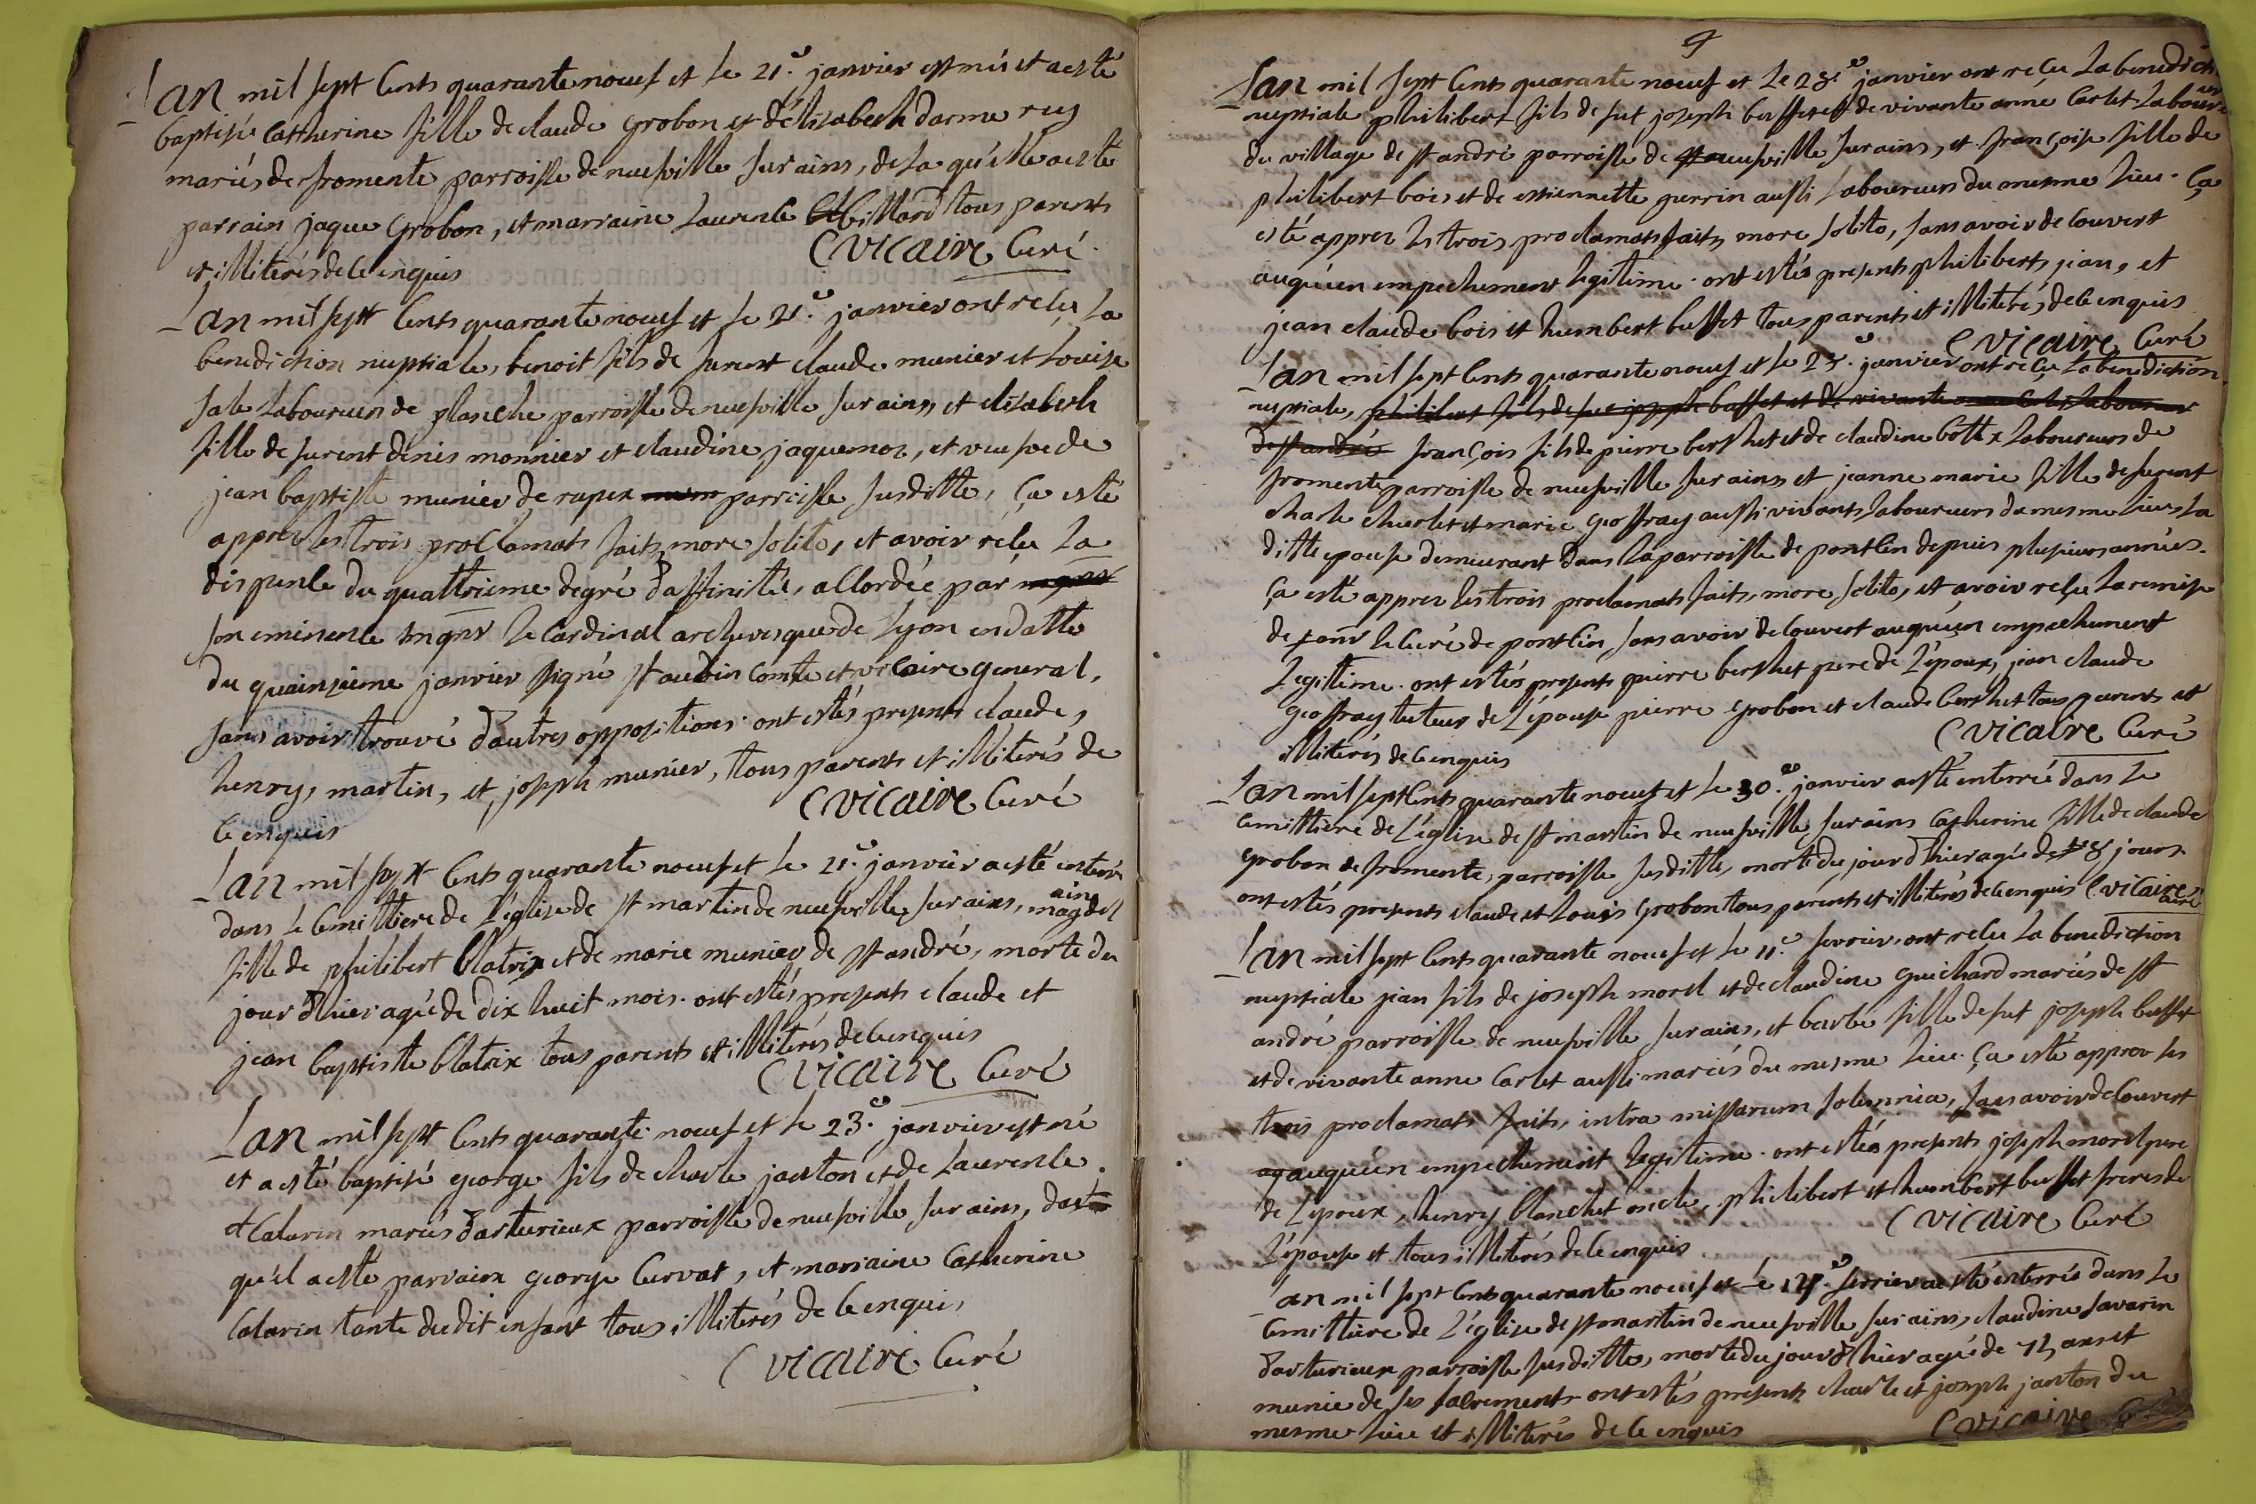 Lan mil sept Cents quarante noeuf et le 21.e janvier est née et a esté
baptisée Catherine fille de claude grobon et d'élisabeth darme rey
mariés de fromente parroisse de neufville sur ains, de la qu'elle a esté
parrain jaque grobon, et marraine Laurence billard tous parents
et illiterés de ce enquis C Vicaire Curé
Lan mil sept Cents quarante noeuf et le 21.e janvier ont reçu La
benediction nuptiale, benoit fils de furent claude munier et Louise
sale Laboureurs de planche parroisse de neufville sur ains, et elisabeth
fille de furent denis monnier et claudine jaquemoz, et veufve de
jean baptiste munier de rapex parroisse susditte, Ça esté
apprez les trois proclamats faits, more solito, et avoir reçu La
dispence du quattrieme degré d'affinité, accordée par
son eminence mgnr le Cardinal archevesque de Lyon en datte
du quainzieme janvier signé st aubin Comte et vicaire general,
sans avoir trouvé d'autres oppositions. ont estés presents claude,
henry, martin, et joseph munier, tous parents et illiterés de
ce enquis C Vicaire Curé
Lan mil sept Cents quarante noeuf et le 21.e janvier a esté enterré
dans le Cemittiere de L'église de st martin de neufville sur ains, magdelaine
fille de philibert blatrix et de marie munier de st andré, morte du
jour d'hier agée de dix huit mois. ont estés presents claude et
jean baptiste blatrix tous parents et illiterés de ce enquis
C Vicaire Curé
Lan mil sept Cents quarante noeuf et le 23.e janvier est né
et a esté baptisé george fils de charle janton et de Laurence
Calarin mariés d'arturieux parroisse de neufville sur ains,
qu'il a esté parrain george Cervat, et marraine Catherine
Calarin tante du dit enfant tous illiterés de ce enquis
C Vicaire Curé
9
Lan mil sept Cents quarante noeuf et le 28.e janvier ont reçu La benediction
nuptiale philibert fils de fut joseph buffet et de vivante anne Carlet Laboureurs
du village de st andré parroisse de neufville sur ains, et françoise fille de
philibert bois et de estiennette guerrin aussi Laboureurs du mesme Lieu. Ça
esté apprez les trois proclamats faits, more solito, sans avoir decouvert
auqu'un empechement legitime. ont estés presents philibert, jean, et
jean claude bois et humbert buffet tous parents et illiterés de ce enquis
C Vicaire Curé
Lan mil sept Cents quarante noeuf et le 28.e janvier ont reçu La benediction
nuptiale, philibert fils de fut joseph buffet et de vivante anne Carlet Laboureurs
de st andré françois fils de pierre berthet et de claudine Laboureurs de
fromente parroisse de neufville sur ains, et jeanne marie fille de furent
charle charlet et marie geoffray aussi vivants Laboureurs du mesme Lieu, La
ditte epouse demeurant dans la parroisse de pontcin depuis plusieurs années.
Ça esté apprez les trois proclamats faits, more solito, et avoir reçu La remise
de le Curé de pontcin, sans avoir decouvert auqu'un empechement
Legitime. ont estés presents pierre berthet pere de L'époux, jean claude
geoffray tuteur de L'épouse pierre grobon et claude berthet tous parents et
illiterés de ce enquis C Vicaire Curé
Lan mil sept Cents quarante noeuf et le 30.e janvier a esté enterrée dans le
Cemittiere de L'église de st martin de neufville sur ains Catherine fille de claude
grobon de fromente, parroisse susditte, morte du jour d'hier agée de 8 jours.
ont estés presents claude et Louis grobon tous parents et illiterés de ce enquis C Vicaire Curé
Lan mil sept Cents quarante noeuf et le 11.e fevrier ont reçu La benediction
nuptiale jean fils de joseph morel et de claudine guichard mariés de st
andré parroisse de neufville sur ains, et barbe fille de fut joseph buffet
et de vivante anne Carlet aussi mariés du mesme Lieu. Ça esté apprez les
trois proclamats faits, intra missarum solemnia, sans avoir decouvert
auqu'un empechement Legitime. ont estés presents joseph morel pere
de L'époux, henry blanchet oncle, philibert et humbert buffet freres de
L'épouse et tous illiterés de ce enquis C Vicaire Curé
Lan mil sept Cents quarante noeuf et le fevrier a esté enterrée dans le
Cemittiere de L'église de st martin de neufville sur ains, claudine savarin
d'arturieux parroisse susditte, morte du jour d'hier agée de ans et
munie de ses sacrements ont estés presents charle et joseph janton du
mesme Lieu et illiterés de ce enquis C Vicaire